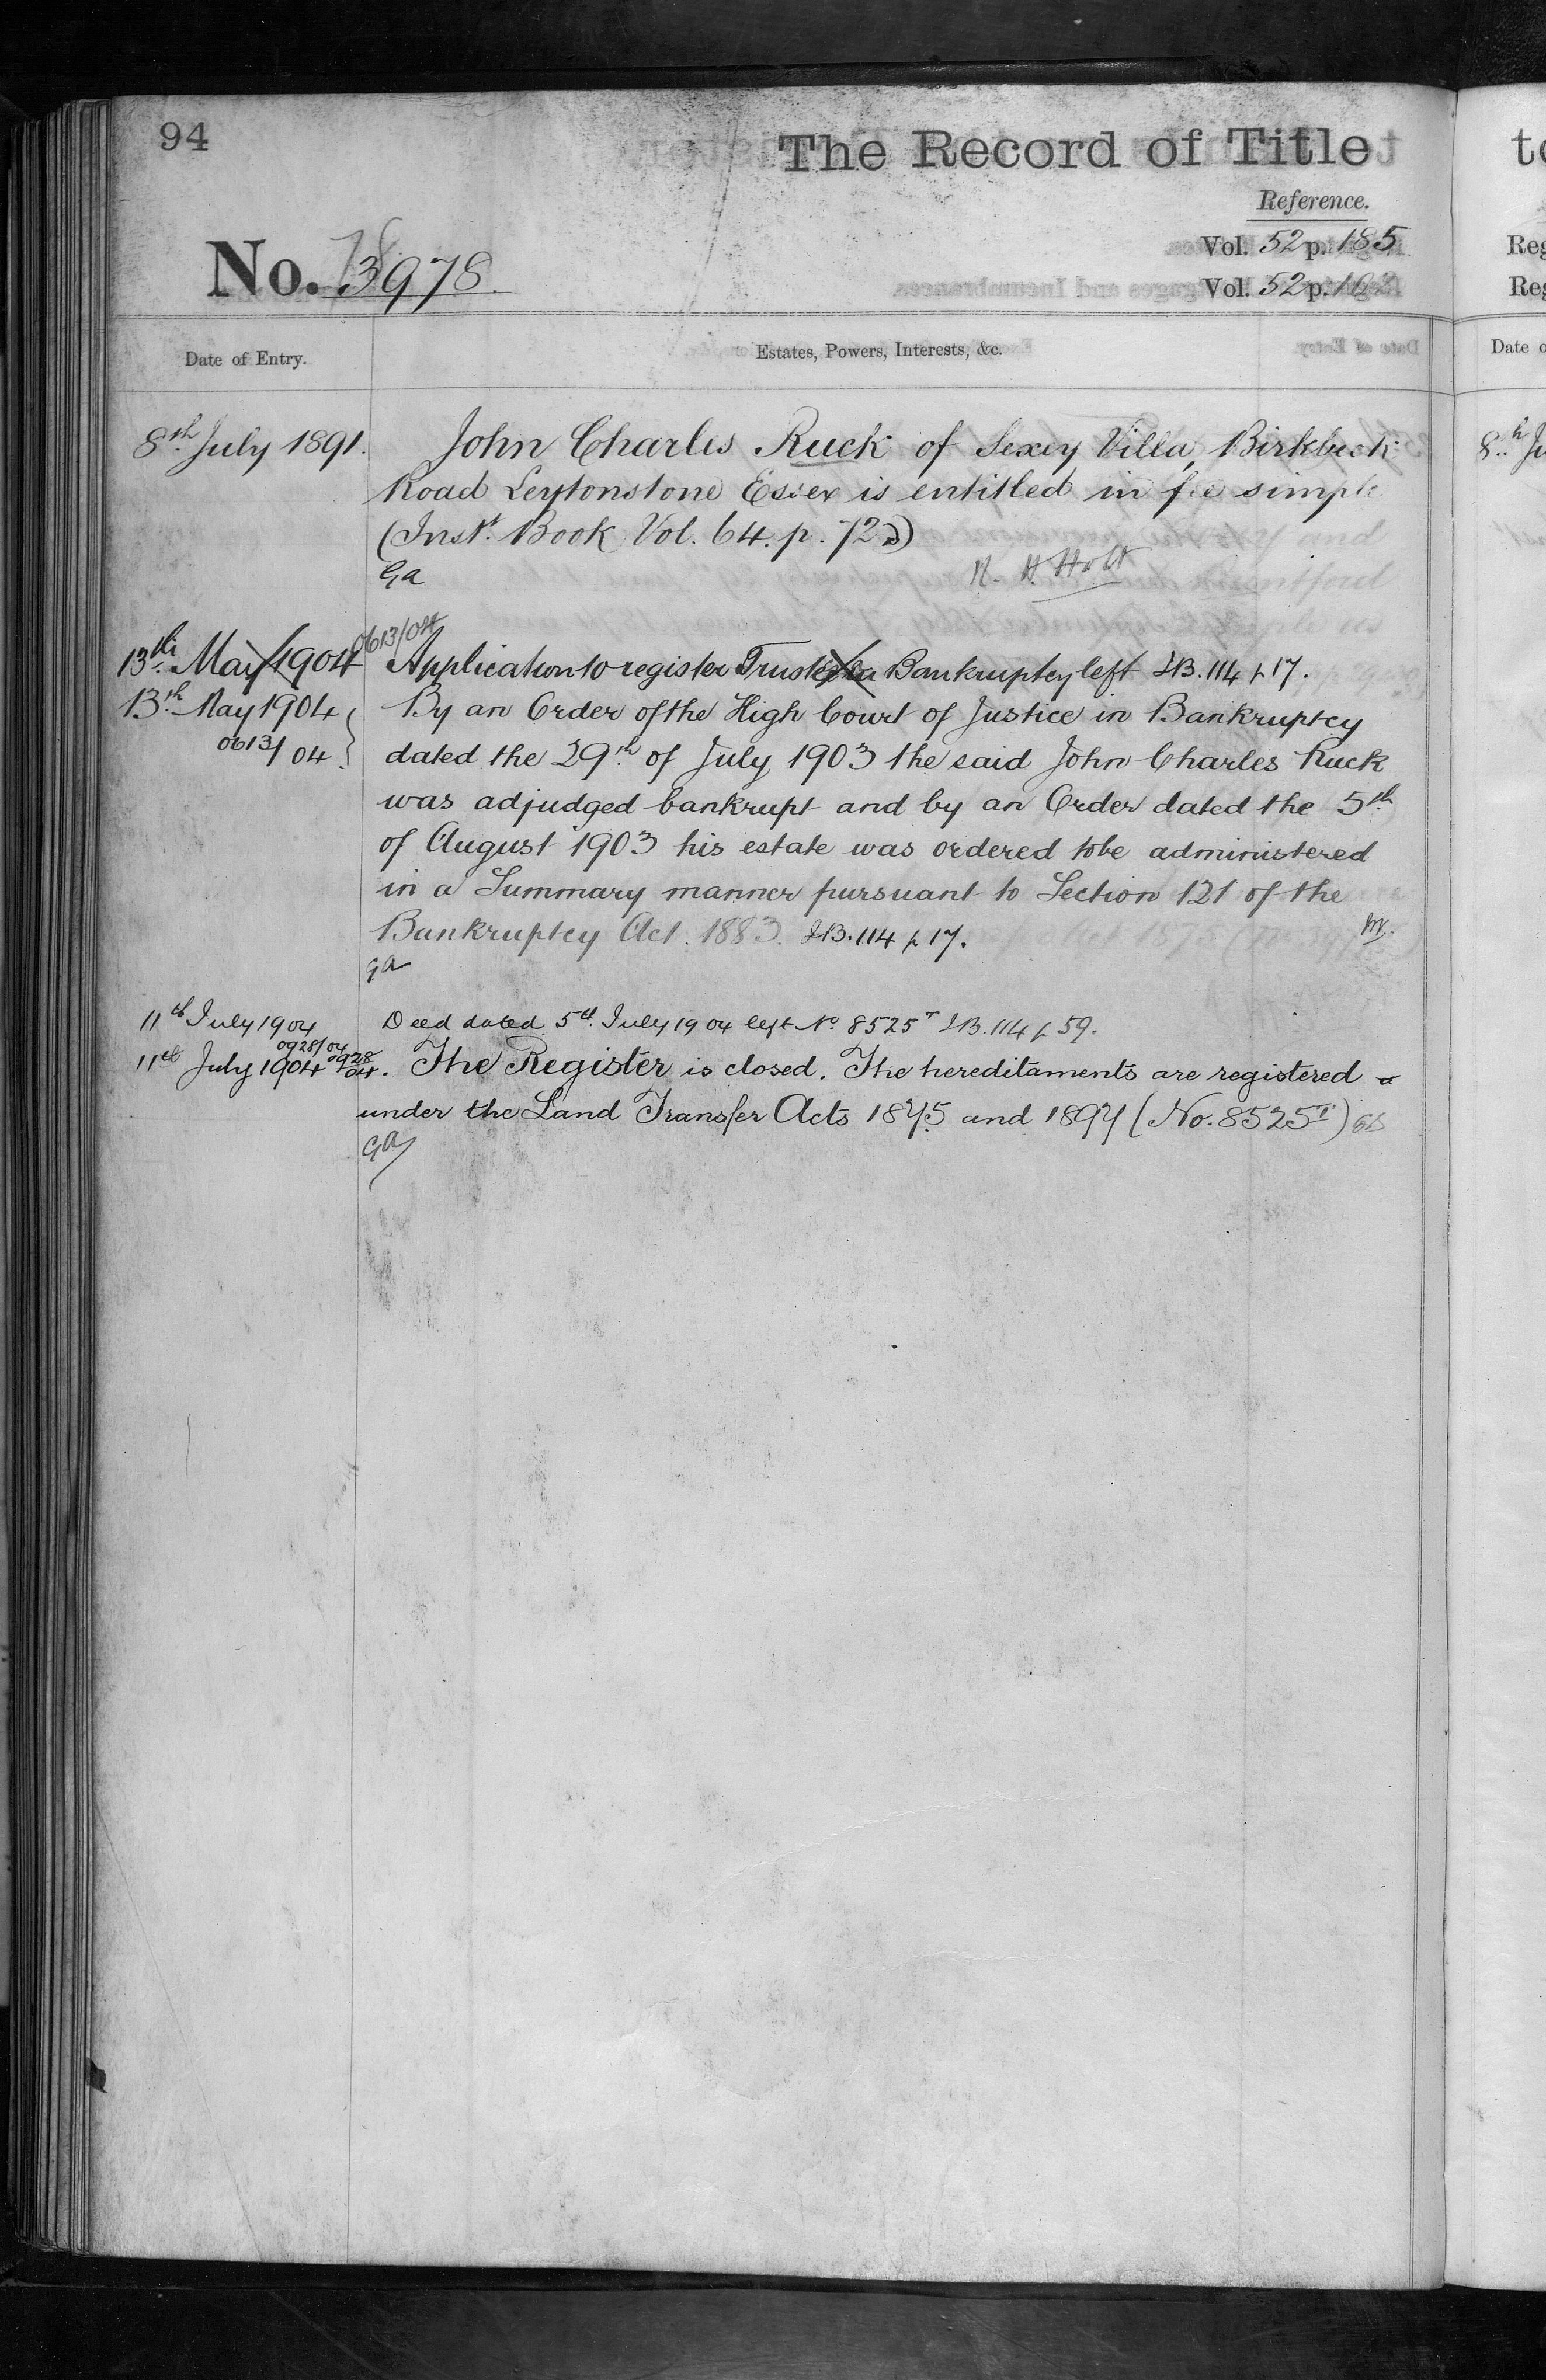 94
The Record of Title
Reference.
Vol. 52 p. 185
No. 3978.
Vol. 52 p.
Date of Entry.
Estates, Powers, Interests, &c.
8th July 1891.
John Charles Ruck of Sexey Villa, Birkbeck
Road Leytonstone Essex is entitled in fee simple
(Inst. Book Vol. 64. p. 72)
Ga
H. Holt
0613/04
13th May 1904
Application to register Trustee in Bankruptcy left IB. 114 p 17.
13th May 1904
0613/04
By an Order of the High Court of Justice in Bankruptcy
dated the 29th of July 1903 the said John Charles Ruck
was adjudged bankrupt and by an Order dated the 5th
of August 1903 his estate was ordered to be administered
in a Summary manner pursuant to Section 121 of the
Bankruptcy Act. 1883. IB. 114 p 17.
ga
11th July 1904
0928/04
Deed dated 5th July 1904 left No. 8525T IB. 114 p 59.
11th July 1904 0928/04.
The Register is closed. The hereditaments are registered
under the Land Transfer Acts 1875 and 1897 (No. 8525T)
ga
to
Reg
Reg
Date o
8th Ju